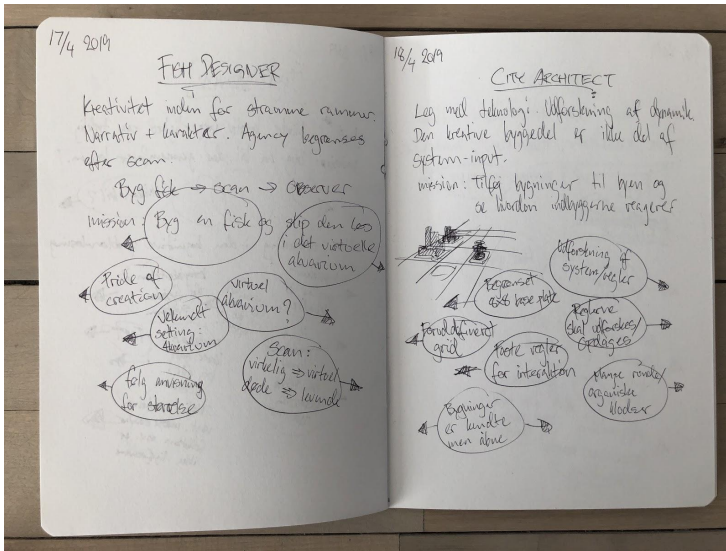 17/4 2019
FISH DESIGNER
Kreativitet inden for stramme rammer.
Narrativ + karakter. Agency begrænses
efter scan.
Byg fisk → scan → observer
mission: Byg en fisk og slip den løs
i det virtuelle
akvarium
Pride of
creation
virtuel
akvarium?
Velkendt
setting:
Akvarium
Scan:
virkelig ⇒ virtuel
døde ⇒ levende
følg anvisning
for størrelse
18/4 2019
CITY ARCHITECT
Leg med teknologi. Udforskning af dynamik.
Den kreative byggedel er ikke del af
system-input.
mission: Tilføj bygninger til byen og
se hvordan indbyggerne reagerer
Udforskning af
system/regler
Begrænset
base plate
Reglerne
skal udforskes/
opdages
Forud defineret
grid
Faste regler
for interaktion
Mange
organiske
klodser
Bygninger
er kendte
men åbne